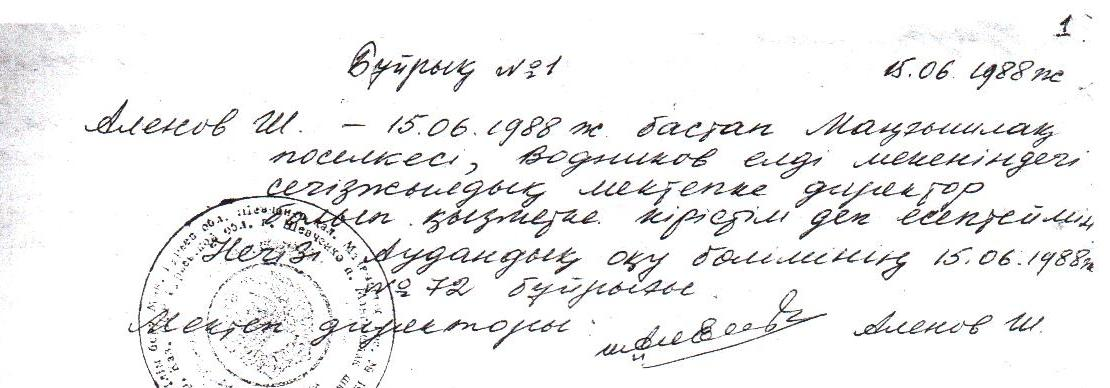 1
Бұйрық №1 15.06.1988 ж
Аленов Ш. – 15.06.1988 ж. бастап Маңғышлақ
поселкесі, Водников елді мекеніндегі
сегізжылдық мектепке директор
болып қызметке кірістім деп есептеймін
Негізі Аудандық оқу бөлімінің 15.06.1988ж
№72 бұйрығы.
Мектеп директоры: Аленов Ш.